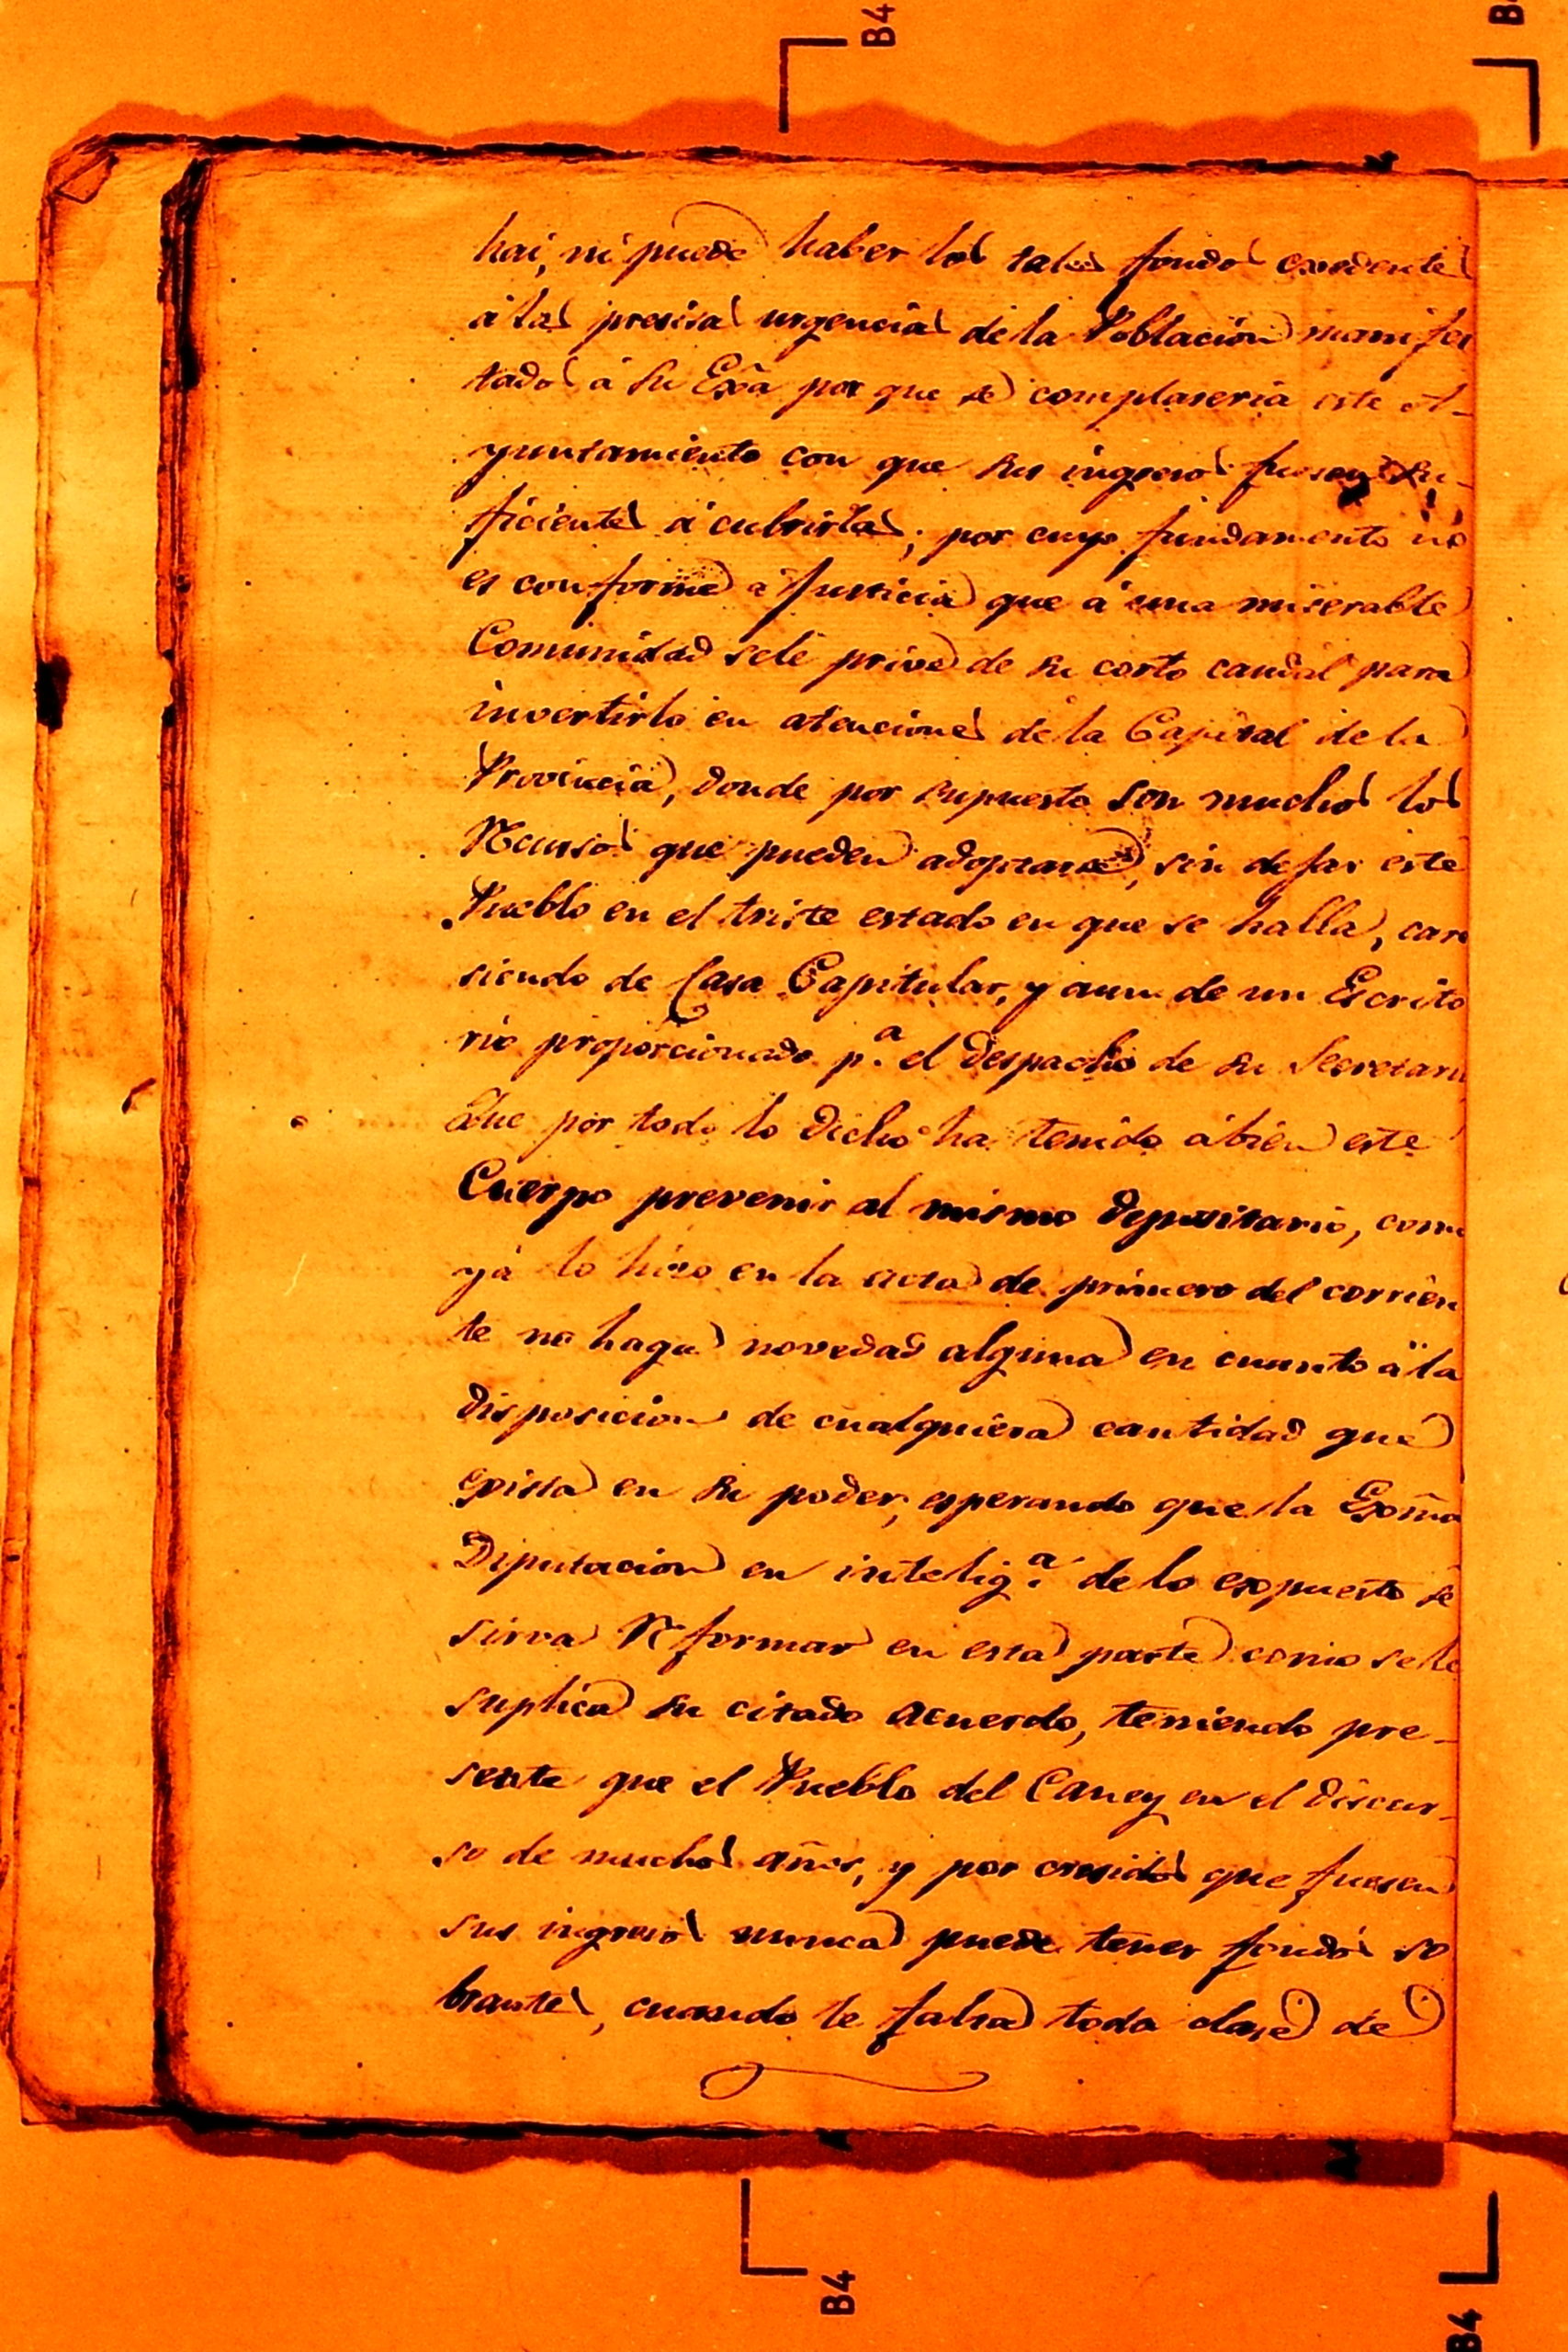 hai, ni puede haber los tales fondos exedentes
á las presisas urgencias de la Poblacion manifes
tados á Su Exâ por que se complaseria este A-
yuntamiento con que sus ingresos fuesen su-
ficientes á cubrirlas; por cuyo fundamento no
es conforme a Justicia que á una miserable
Comunidad sele prive de su corto caudal para
invertirlo en atenciones de la Capital de la
Provincia, donde por supuesto son muchos los
Recursos que pueden adoptarse, sin dejar este
Pueblo en el triste estado en que se halla, care
siendo de Casa Capitular, y aun de un Escrito
rio proporcionado p.a el despacho de su Secretari
Que por todo lo dicho ha tenido ábien este
Cuerpo prevenir al mismo depositario, como
yá lo hizo en la acta de primero del corrien
te no haga novedad alguna en cuanto á la
disposicion de cualquiera cantidad que
exista en su poder, esperando que la Exma
Diputacion en intelig.a de lo expuesto se
sirva Reformar en esta parte como sele
suplica su citado acuerdo, teniendo pre-
sente que el Pueblo del Caney en el discur-
so de muchos años, y por cresidos que fuesen
sus ingresos nunca puede tener fondos so
brantes, cuando le falta toda clase de
B4
B4
B4
B4